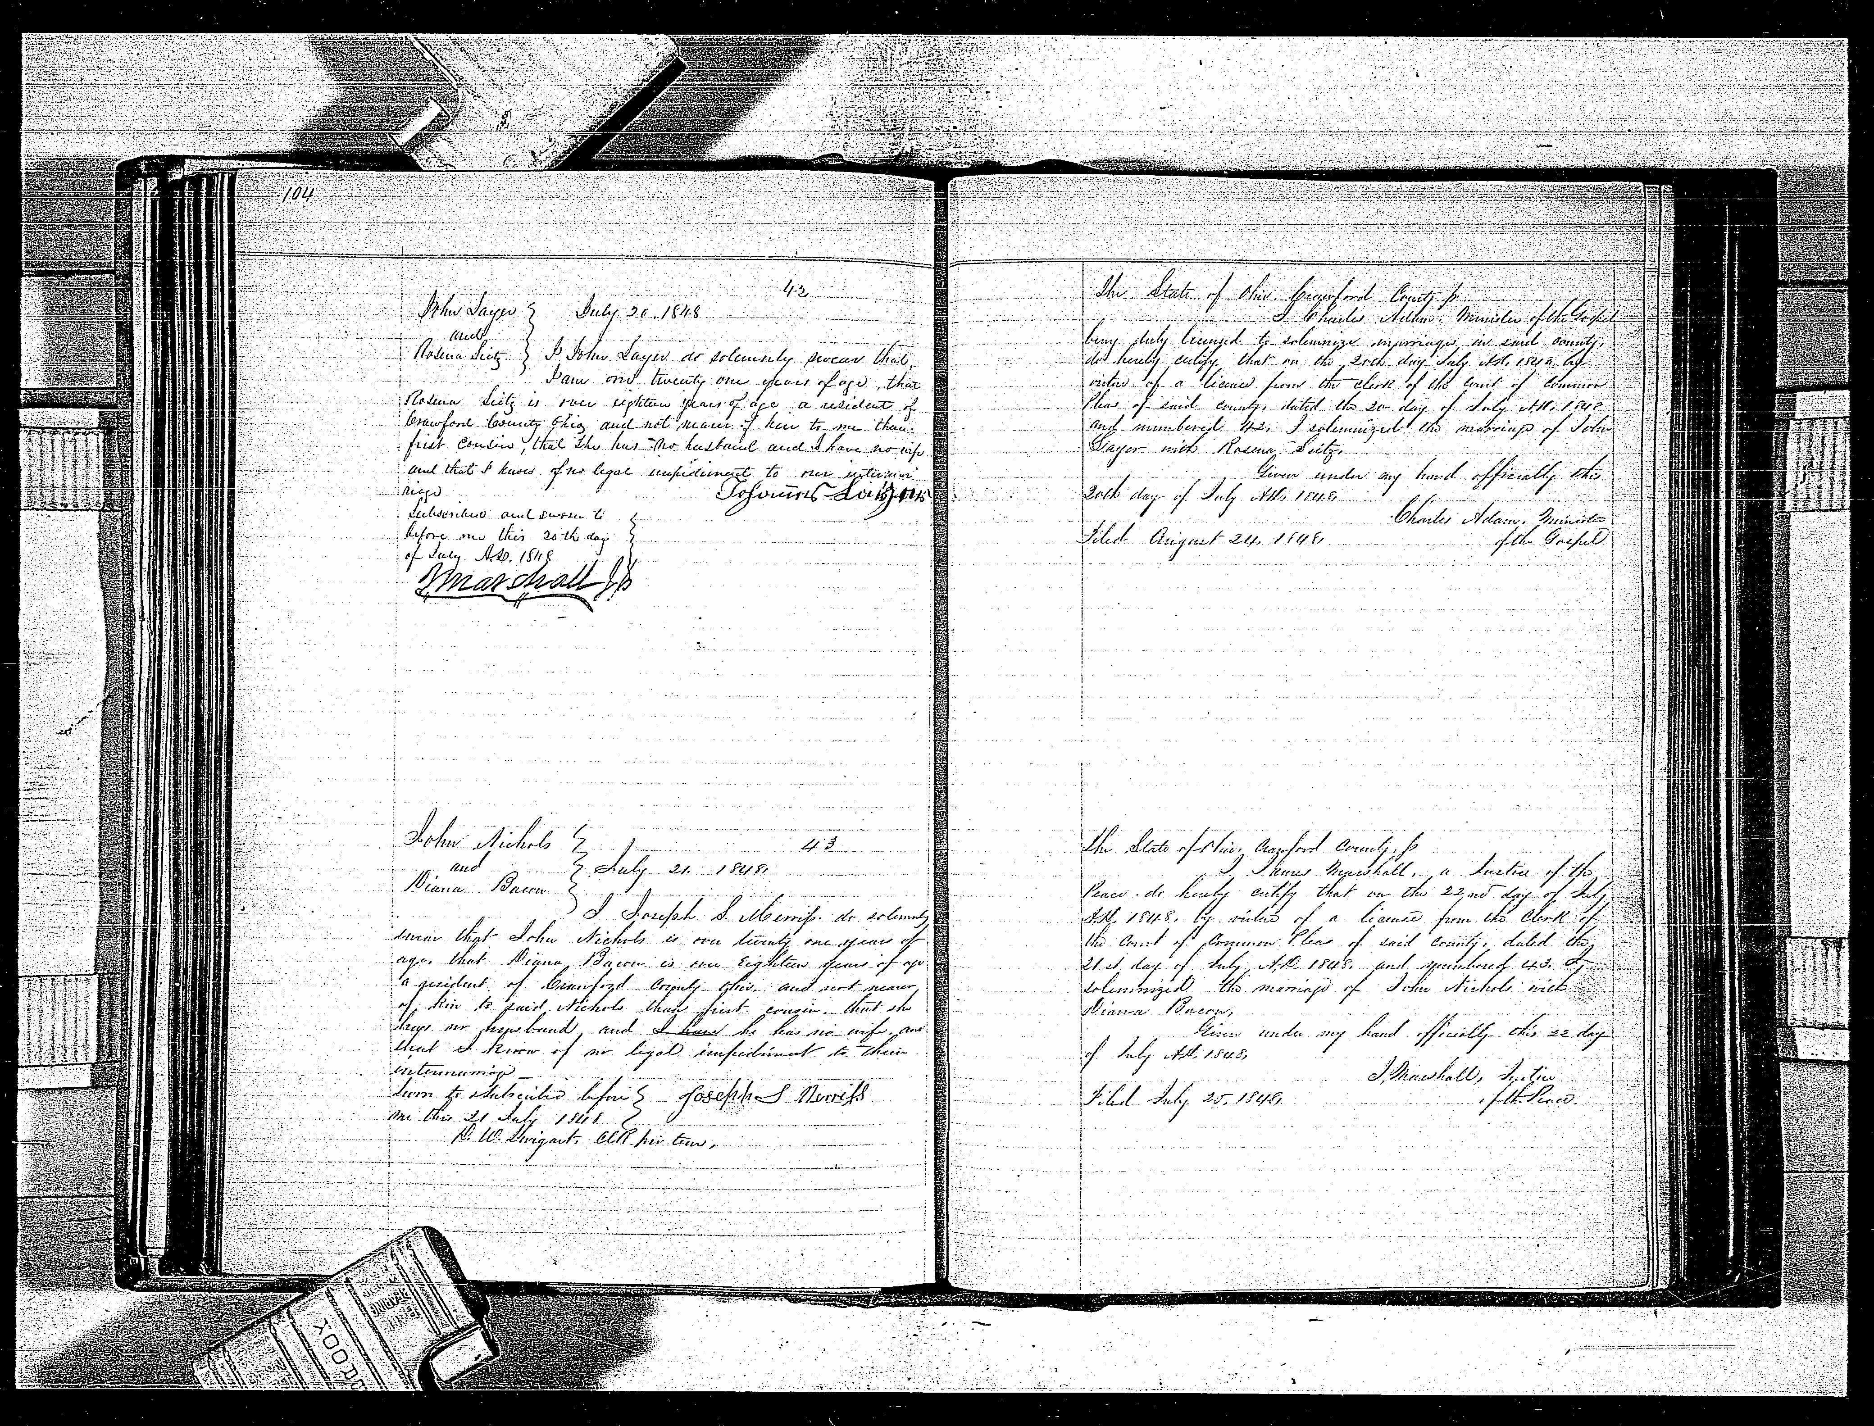 104
42
John Sayer
and
Rosena Seitz
July 20 1848
I John Sayer do solemnly swear that
I am over twenty one years of age, that
Rosena Seitz is over eighteen years of age a resident of
Crawford County Ohio and not nearer of kin to me than
first cousin, that she has no husband and I have no wife
and that I know of no legal impediment to our intermar
riage
Subscribed and sworn to
before me this 20th day
of July A.D. 1848
J Marshall J P
John Nichols
and
Diana Bacon
43
July 21 1848.
I Joseph S. Merriss do solemnly
swear that John Nichols is over twenty one years of
age, that Diana Bacon is over Eighteen years of age
a resident of Crawford County Ohio and not nearer
of kin to said Nichols than first cousin that she
has no husband, and I have he has no wife and
that I know of no legal impediment to their
intermarriage
Sworn to & Subscribed before
me this 21 July 1848
Joseph S Merriss
D. W. Swigart. Clk pro tem,
The State of Ohio Crawford County ss
I Charles Adam, Minister of the Gospel
being duly licensed to solemnize marriages in said county,
do hereby certify that on the 20th day July A.D. 1848 by
virtue of a license from the Clerk of the Court of Common
Pleas of said county, dated the 20 day of July A.D. 1848
and numbered 42, I solemnized the marriage of John
Sayer with Rosena Seitz.
Given under my hand officially this
20th day of July A.D. 1848.
Charles Adam, Minister
of the Gospel
Filed August 24, 1848.
The State of Ohio, Crawford County, ss
I, James Marshall, a Justice of the
Peace do hereby certify that on the 22nd day of July
A.D. 1848. by virtue of a license from the Clerk of
the Court of Common Pleas of said County, dated the
21st day of July A.D. 1848. and numbered 43. I
solemnized the marriage of John Nichols with
Diana Bacon,
Given under my hand officially this 22 day
of July A.D. 1848.
J, Marshall, Justice
of the Peace
Filed July 25, 1848.